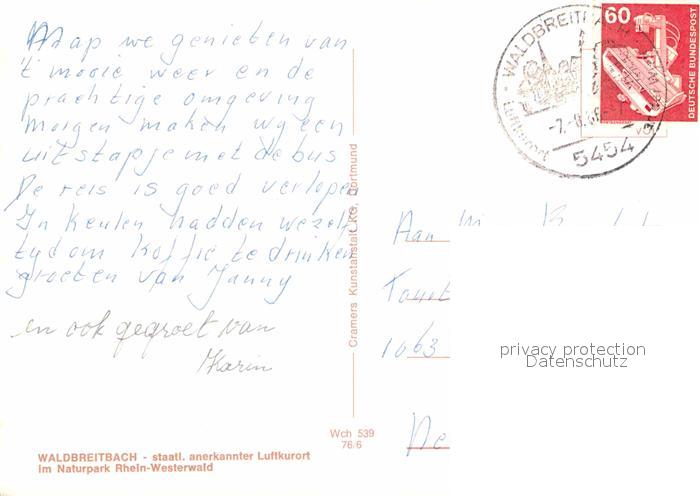 we genieten van
't mooie weer en de
prachtige omgeving
morgen maken wy een
uitstapje met de bus
De reis is goed verlopen
In Keulen hadden we zelf
tyd om koffie te drinken
groeten van Janny
en ook gegroet van
Karin
WALDBREITBACH - staatl. anerkannter Luftkurort
im Naturpark Rhein-Westerwald
Cramers Kunstanstalt KG, Dortmund
Wch 539
76/6
60
DEUTSCHE BUNDESPOST
WALDBREITBACH
Luftkurort
5454
Aan
1063
privacy protection
Datenschutz